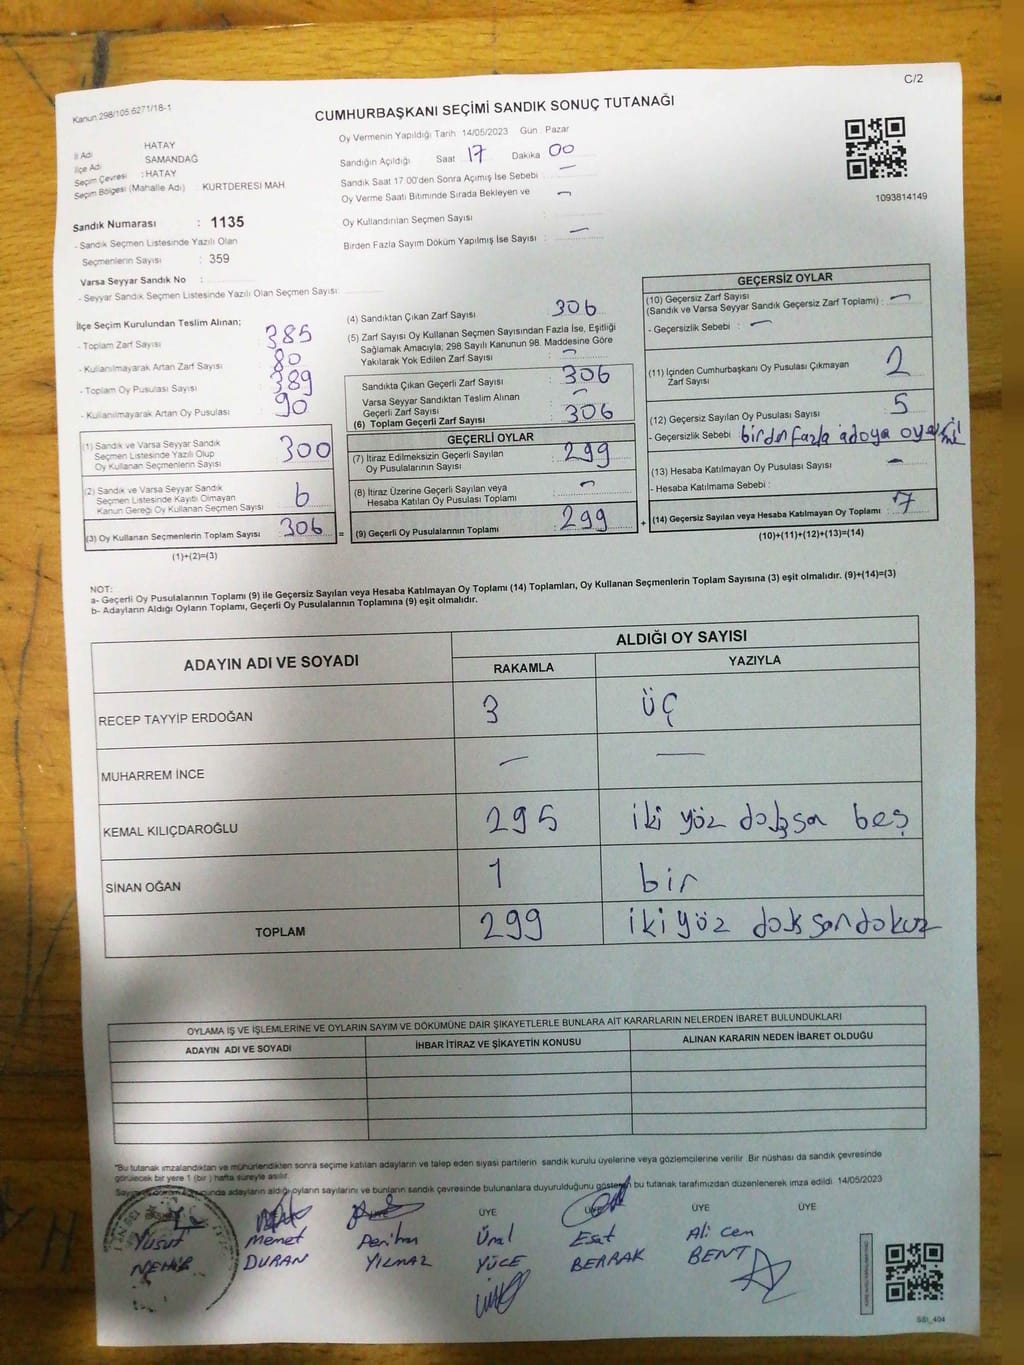 C/2
Kanun:298/105:6271/18-1
CUMHURBAŞKANI SEÇİMİ SANDIK SONUÇ TUTANAĞI
İl Adı : HATAY
İlçe Adı : SAMANDAĞ
Seçim Çevresi : HATAY
Seçim Bölgesi (Mahalle Adı) KURTDERESİ MAH
Sandık Numarası : 1135
- Sandık Seçmen Listesinde Yazılı Olan
Seçmenlerin Sayısı : 359
Varsa Seyyar Sandık No :
- Seyyar Sandık Seçmen Listesinde Yazılı Olan Seçmen Sayısı:
Oy Vermenin Yapıldığı Tarih 14/05/2023 Gün : Pazar
Sandığın Açıldığı Saat 17 Dakika 00
Sandık Saat 17.00'den Sonra Açımış İse Sebebi : —
Oy Verme Saati Bitiminde Sırada Bekleyen ve —
Oy Kullandırılan Seçmen Sayısı :
Birden Fazla Sayım Döküm Yapılmış İse Sayısı : —
1093814149
İlçe Seçim Kurulundan Teslim Alınan;
- Toplam Zarf Sayısı : 385
- Kullanılmayarak Artan Zarf Sayısı : 80
- Toplam Oy Pusulası Sayısı : 389
- Kullanılmayarak Artan Oy Pusulası : 90
(1) Sandık ve Varsa Seyyar Sandık
Seçmen Listesinde Yazılı Olup
Oy Kullanan Seçmenlerin Sayısı : 300
(2) Sandık ve Varsa Seyyar Sandık
Seçmen Listesinde Kayıtlı Olmayan
Kanun Gereği Oy Kullanan Seçmen Sayısı : 6
(3) Oy Kullanan Seçmenlerin Toplam Sayısı : 306 =
(1)+(2)=(3)
(4) Sandıktan Çıkan Zarf Sayısı : 306
(5) Zarf Sayısı Oy Kullanan Seçmen Sayısından Fazla İse, Eşitliği
Sağlamak Amacıyla; 298 Sayılı Kanunun 98. Maddesine Göre
Yakılarak Yok Edilen Zarf Sayısı : —
Sandıkta Çıkan Geçerli Zarf Sayısı : 306
Varsa Seyyar Sandıktan Teslim Alınan
Geçerli Zarf Sayısı : —
(6) Toplam Geçerli Zarf Sayısı : 306
GEÇERLİ OYLAR
(7) İtiraz Edilmeksizin Geçerli Sayılan
Oy Pusulalarının Sayısı : 299
(8) İtiraz Üzerine Geçerli Sayılan veya
Hesaba Katılan Oy Pusulası Toplamı : —
(9) Geçerli Oy Pusulalarının Toplamı : 299 +
GEÇERSİZ OYLAR
(10) Geçersiz Zarf Sayısı
(Sandık ve Varsa Seyyar Sandık Geçersiz Zarf Toplamı) : —
- Geçersizlik Sebebi : —
(11) İçinden Cumhurbaşkanı Oy Pusulası Çıkmayan
Zarf Sayısı : 2
(12) Geçersiz Sayılan Oy Pusulası Sayısı : 5
- Geçersizlik Sebebi birden fazla adaya oy
(13) Hesaba Katılmayan Oy Pusulası Sayısı : —
- Hesaba Katılmama Sebebi :
(14) Geçersiz Sayılan veya Hesaba Katılmayan Oy Toplamı : 7
(10)+(11)+(12)+(13)=(14)
NOT:
a- Geçerli Oy Pusulalarının Toplamı (9) ile Geçersiz Sayılan veya Hesaba Katılmayan Oy Toplamı (14) Toplamları, Oy Kullanan Seçmenlerin Toplam Sayısına (3) eşit olmalıdır. (9)+(14)=(3)
b- Adayların Aldığı Oyların Toplamı, Geçerli Oy Pusulalarının Toplamına (9) eşit olmalıdır.
ADAYIN ADI VE SOYADI
ALDIĞI OY SAYISI
RAKAMLA YAZIYLA
RECEP TAYYİP ERDOĞAN 3 üç
MUHARREM İNCE — —
KEMAL KILIÇDAROĞLU 295 iki yöz doksan beş
SİNAN OĞAN 1 bir
TOPLAM 299 iki yöz doksan dokuz
OYLAMA İŞ VE İŞLEMLERİNE VE OYLARIN SAYIM VE DÖKÜMÜNE DAİR ŞİKAYETLERLE BUNLARA AİT KARARLARIN NELERDEN İBARET BULUNDUKLARI
ADAYIN ADI VE SOYADI İHBAR İTİRAZ VE ŞİKAYETİN KONUSU ALINAN KARARIN NEDEN İBARET OLDUĞU
"Bu tutanak imzalandıktan ve mühürlendikten sonra seçime katılan adayların ve talep eden siyasi partilerin sandık kurulu üyelerine veya gözlemcilerine verilir. Bir nüshası da sandık çevresinde
görülecek bir yere 1 (bir) hafta süreyle asılır.
adayların aldığı oyların sayılarını ve bunların sandık çevresinde bulunanlara duyurulduğunu gösteren bu tutanak tarafımızdan düzenlenerek imza edildi. 14/05/2023
ÜYE ÜYE ÜYE ÜYE
Yusuf Memet Perihan Üral Esat Ali Cem
NEHİR DURAN YILMAZ YÜCE BERRAK BENT
SSI_404